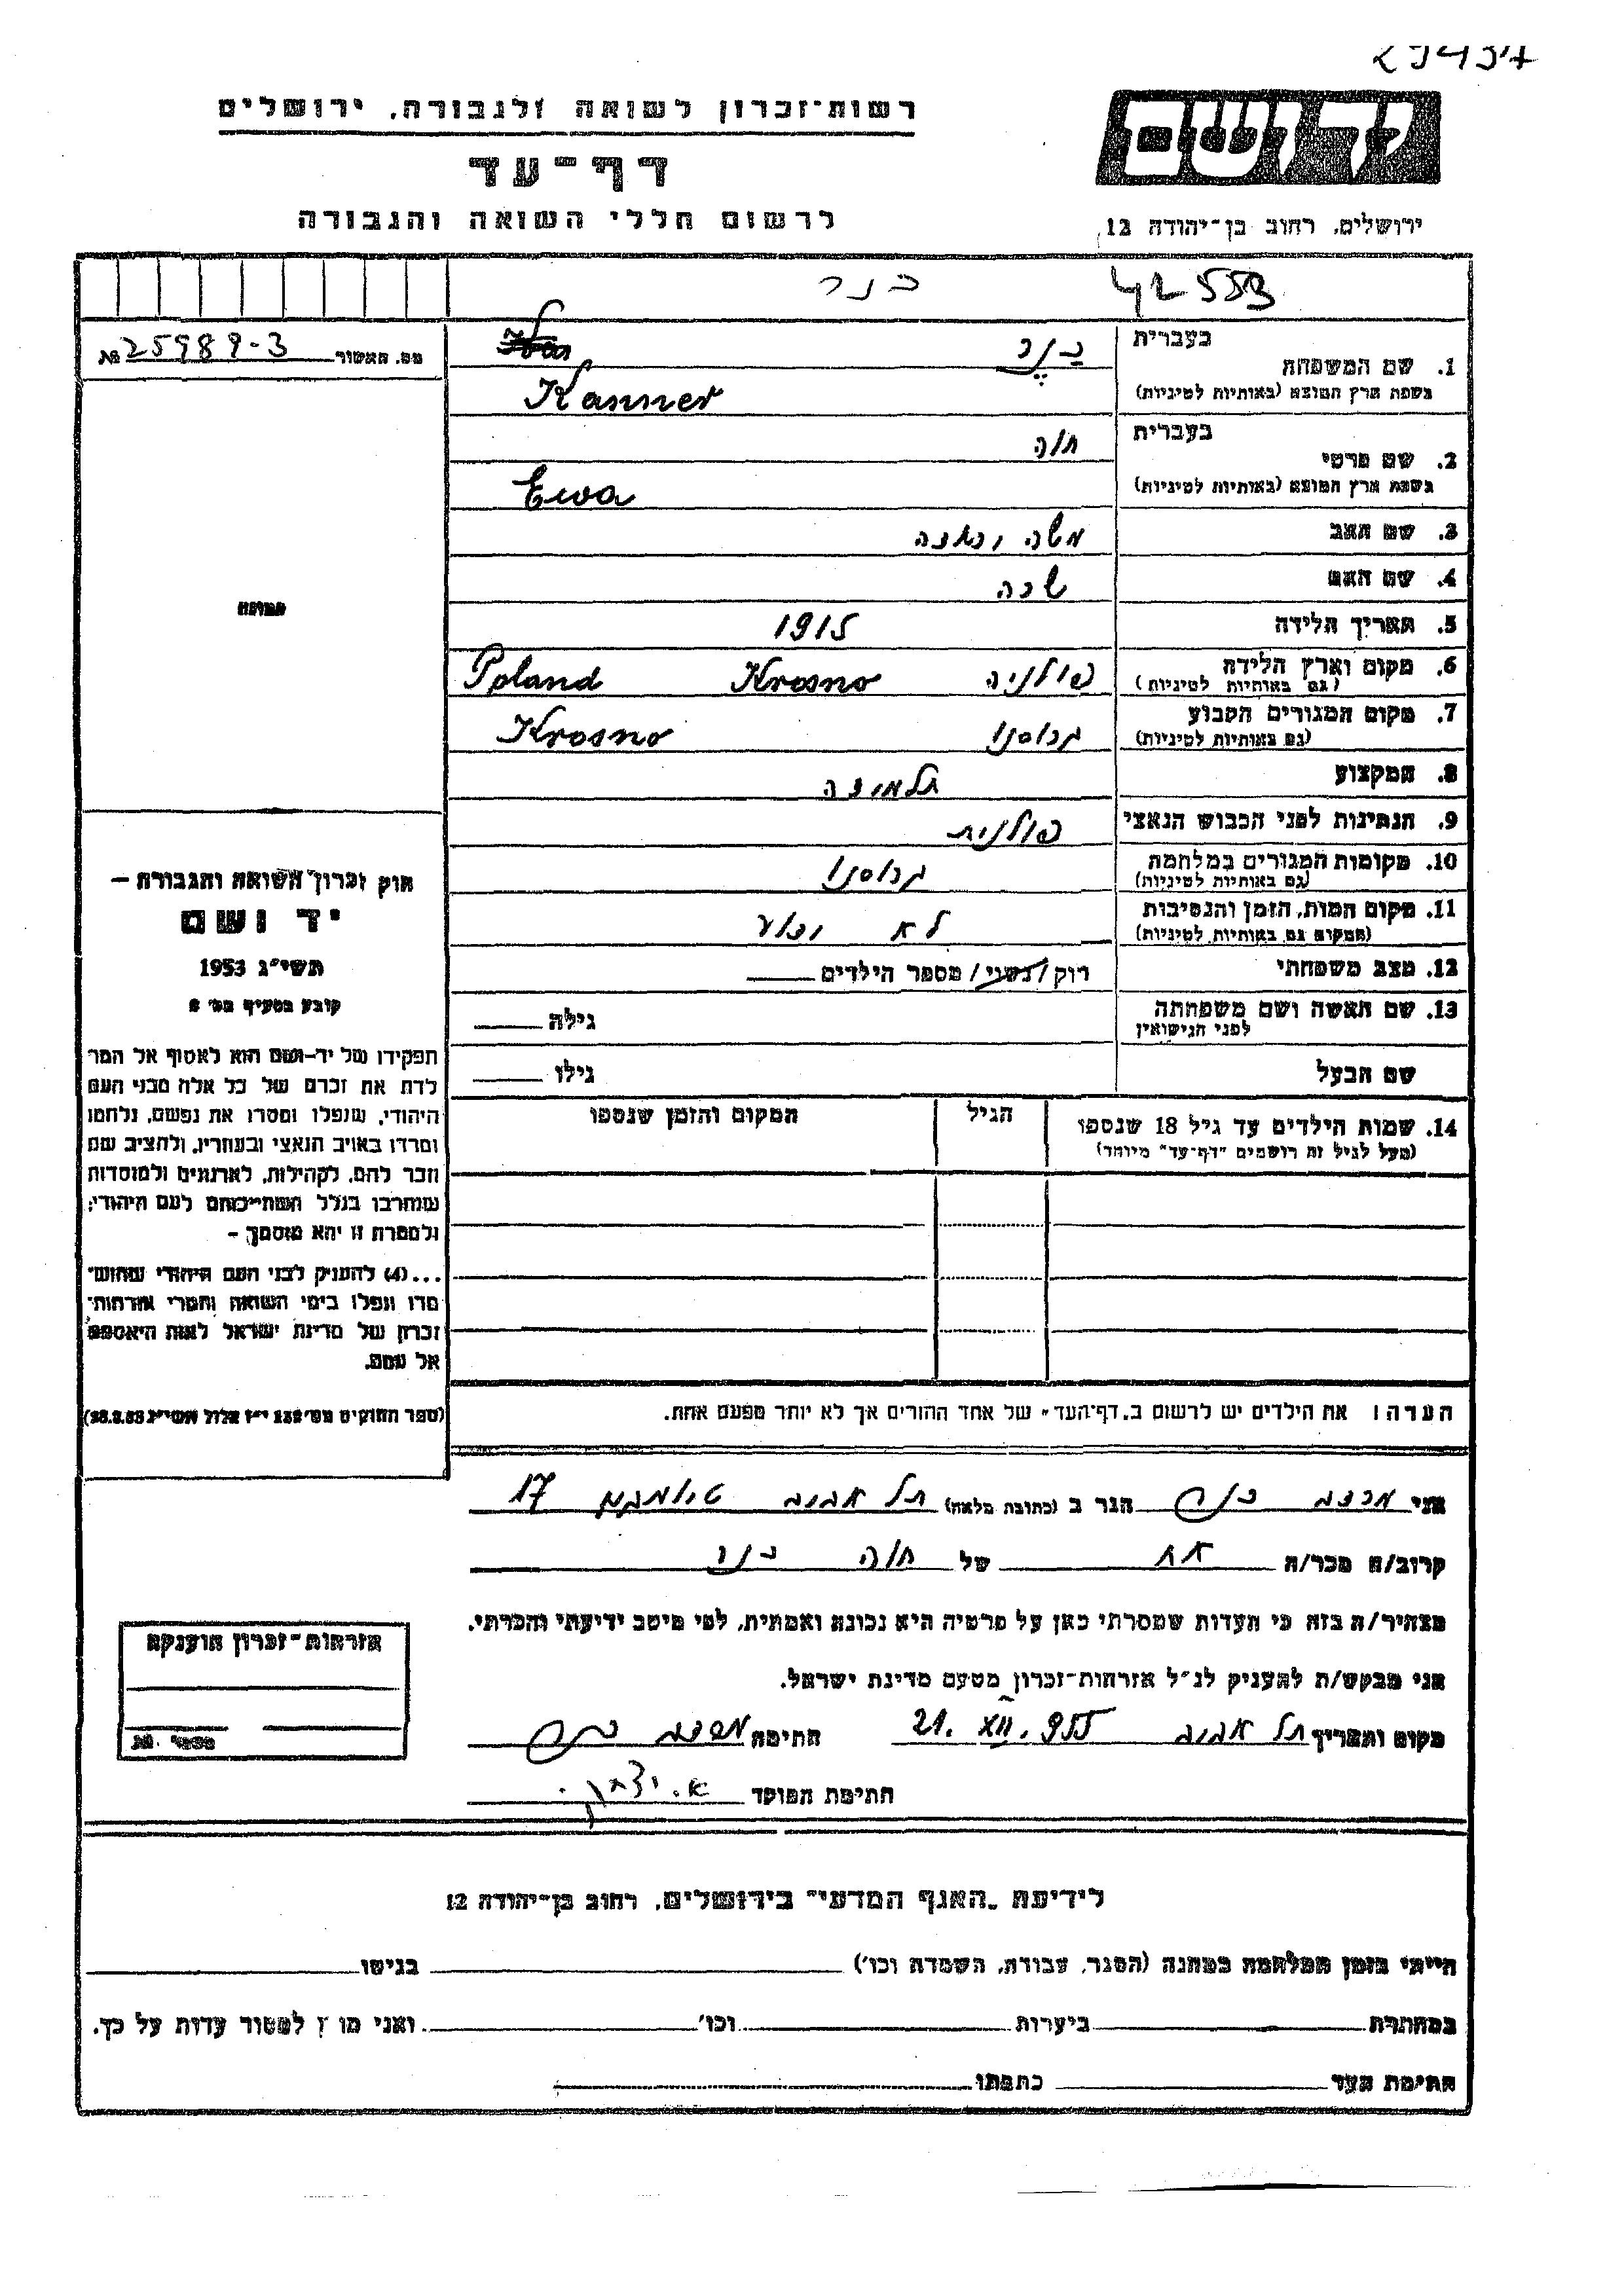 29457
רשות־זכרון לשואה ולגבורה, ירושלים
יד ושם
דף־עד
לרשום חללי השואה והגבורה
ירושלים, רחוב בן־יהודה 12
42553 כנר
מס. האשור 25989-3 №
בעברית כנר
1. שם המשפחה
בשפת ארץ המוצא (באותיות לטיניות) Kanner
בעברית חוה
2. שם פרטי
בשפת ארץ המוצא (באותיות לטיניות) Ewa
3. שם האב משה
4. שם האם
תמונה
5. תאריך הלידה 1915
6. מקום וארץ הלידה פולניה Krosno Poland
(גם באותיות לטיניות)
7. מקום המגורים הקבוע קרוסנו Krosno
(גם באותיות לטיניות)
8. המקצוע תלמידה
9. הנתינות לפני הכבוש הנאצי פולנית
10. מקומות המגורים במלחמה קרוסנו
(גם באותיות לטיניות)
11. מקום המות, הזמן והנסיבות לא ידוע
(המקום גם באותיות לטיניות)
12. מצב משפחתי רוק/נשוי/ מספר הילדים
13. שם האשה ושם משפחתה גילה
לפני הנישואין
שם הבעל גילו
14. שמות הילדים עד גיל 18 שנספו הגיל המקום והזמן שנספו
(מעל לגיל זה רושמים "דף־עד" מיוחד)
חוק זכרון השואה והגבורה –
יד ושם
תשי"ג 1953
קובע בסעיף מס' 2
תפקידו של יד-ושם הוא לאסוף אל המו־
לדת את זכרם של כל אלה מבני העם
היהודי, שנפלו ומסרו את נפשם, נלחמו
ומרדו באויב הנאצי ובעוזריו, ולהציב שם
וזכר להם, לקהילות, לארגונים ולמוסדות
שנחרבו בגלל השתייכותם לעם היהודי;
ולמטרת זו יהא מוסמך –
...(4) להעניק לבני העם היהודי שהוש־
מדו ונפלו בימי השואה והמרי אזרחות־
זכרון של מדינת ישראל לאות היאספם
אל עמם.
(ספר החוקים מס' 132 י"ז אלול תשי"ג 28.8.53)
הערה: את הילדים יש לרשום ב"דף־העד" של אחד ההורים אך לא יותר מפעם אחת.
אני הגר ב (כתובת מלאה) תל אביב 17
קרוב/ה מכר/ה אח של חוה כנר
מצהיר/ה בזה כי העדות שמסרתי כאן על פרטיה היא נכונה ואמתית, לפי מיטב ידיעתי והכרתי.
אני מבקש/ת להעניק לנ"ל אזרחות־זכרון מטעם מדינת ישראל.
מקום ותאריך תל אביב 21.XII.955 חתימה
חתימת הפוקד
אזרחות־זכרון הוענקה
מספר №
לידיעת "האגף המדעי" בירושלים, רחוב בן־יהודה 12
הייתי בזמן המלחמה במחנה (הסגר, עבודה, השמדה וכו') בגיטו
במחתרת ביערות וכו' ואני מו ן למסור עדות על כך.
חתימת העד כתבתו